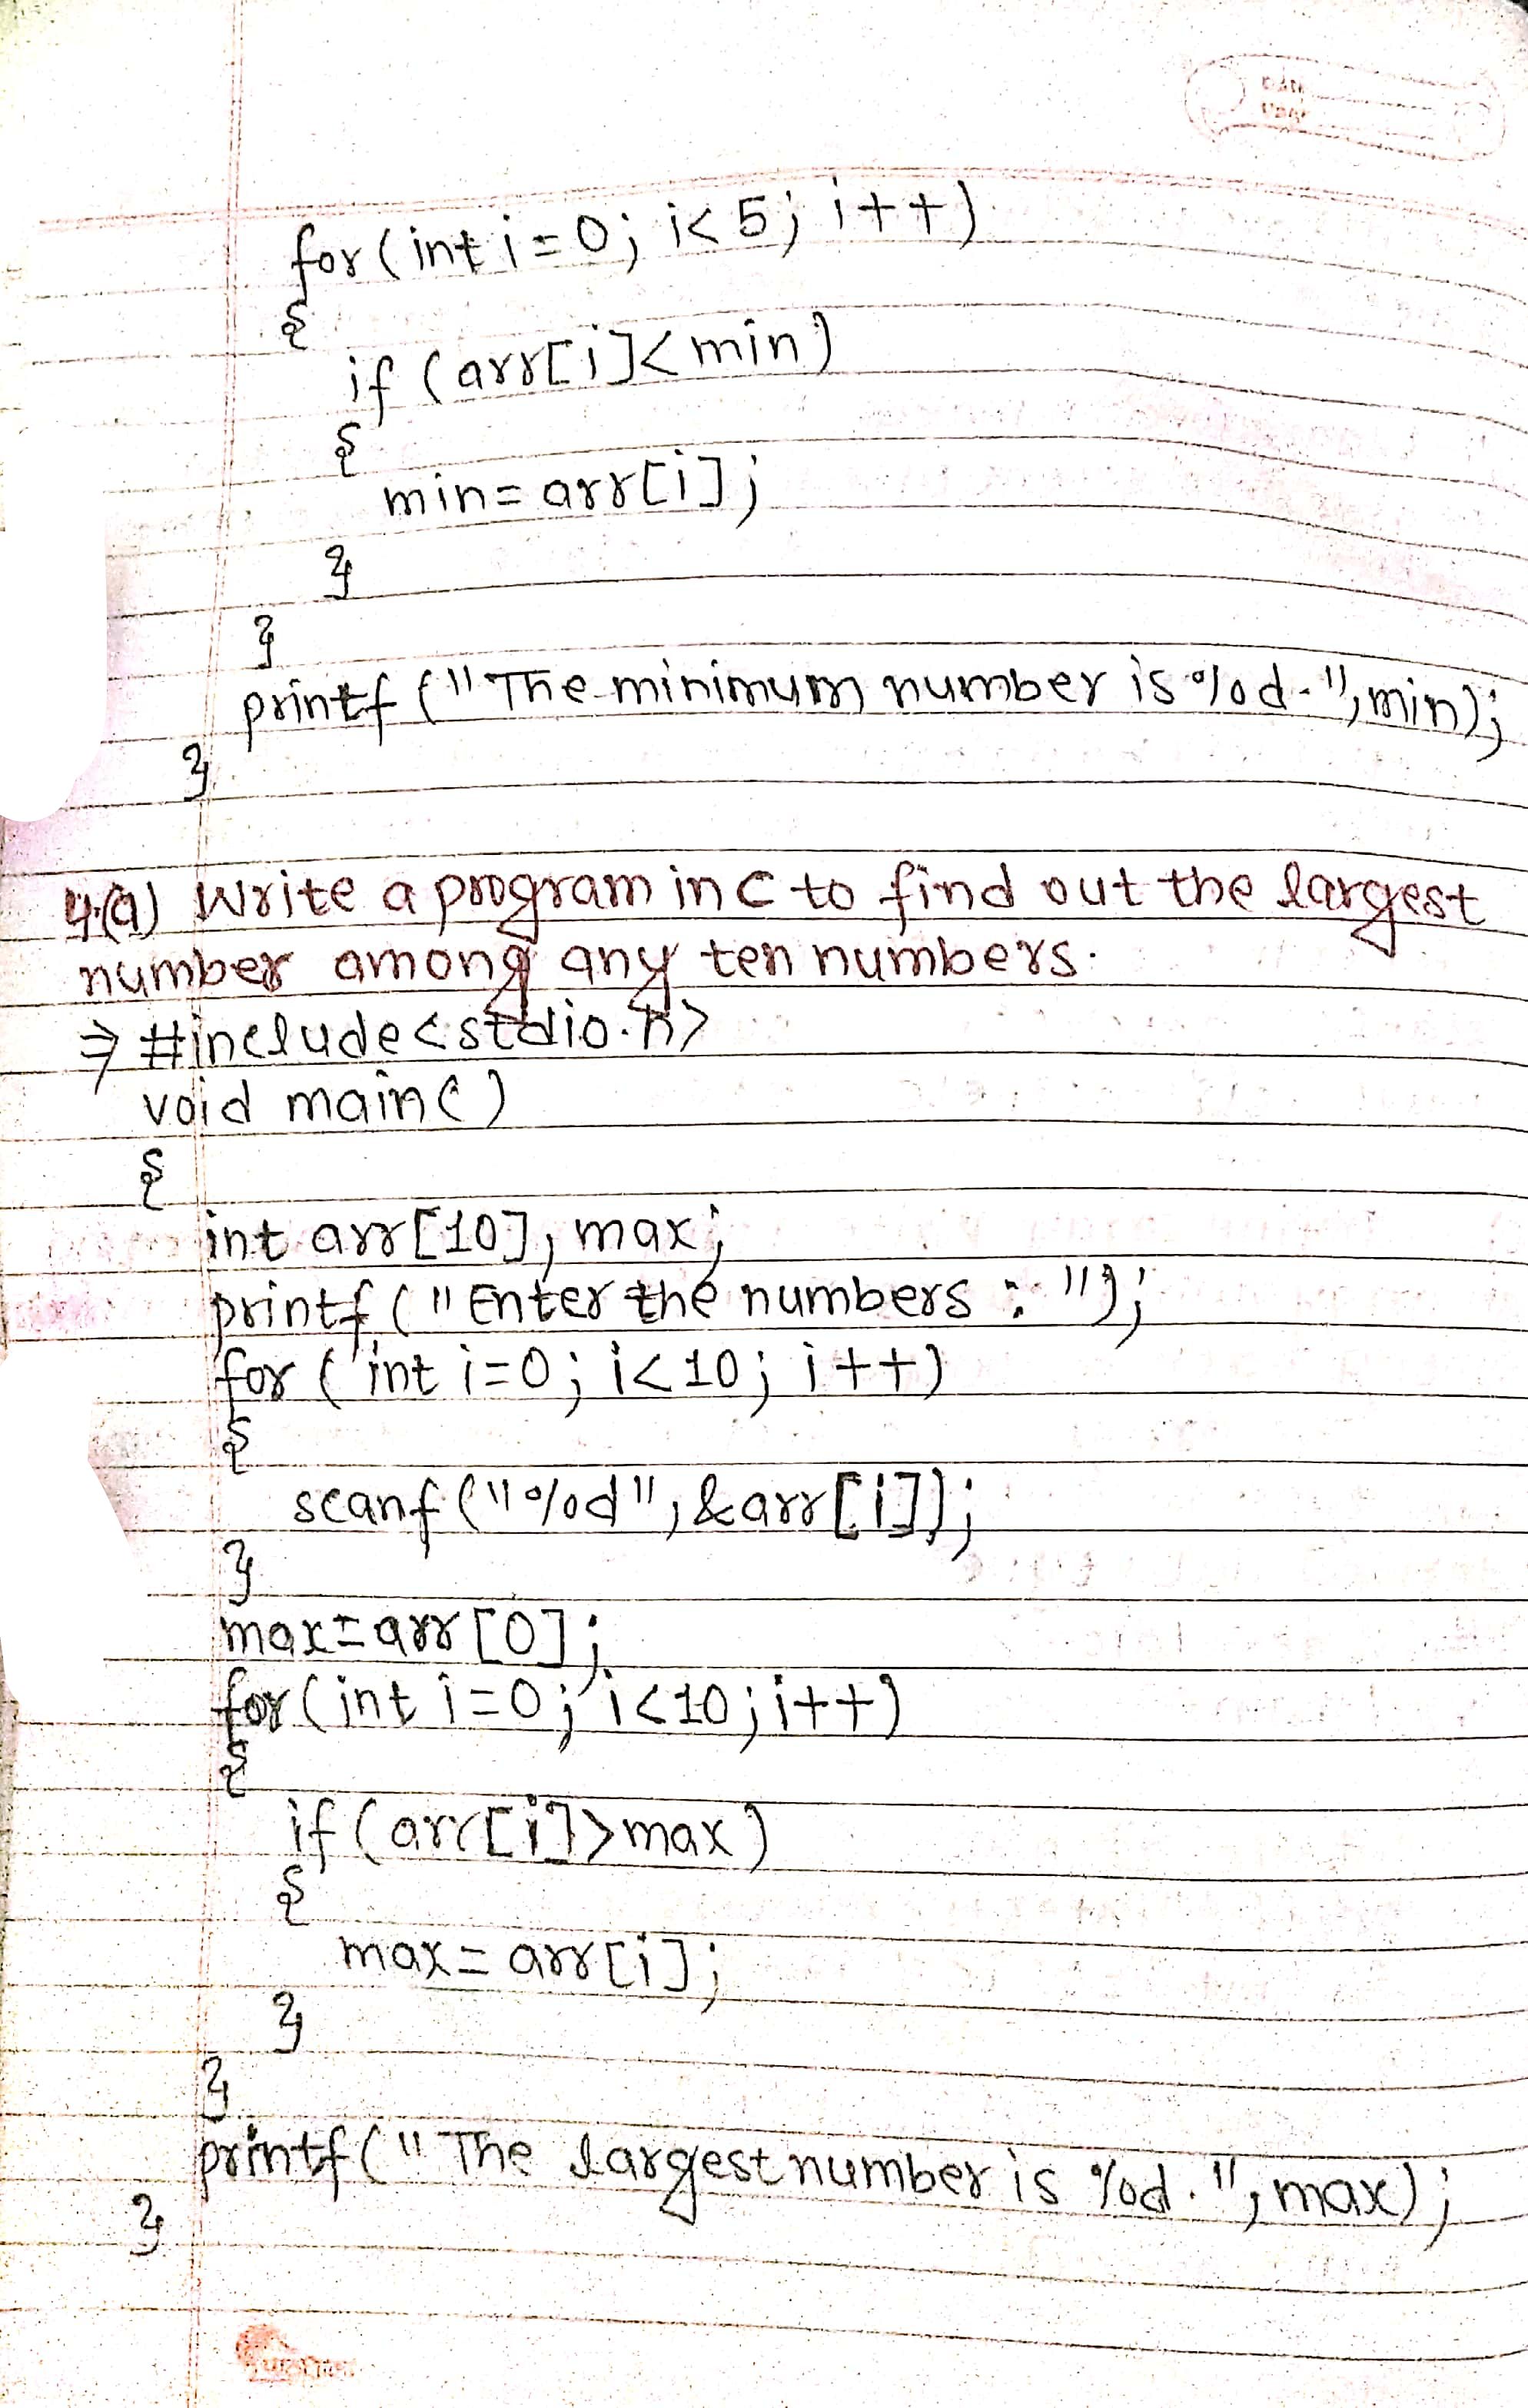 for(int i=0; i<5; i++)
{
if (arr[i]<min)
{
min=arr[i];
}
}
printf("The minimum number is %d.",min);
}
4.(a) Write a program in C to find out the largest
number among any ten numbers.
⇒ #include<stdio.h>
void main()
{
int arr[10], max;
printf("Enter the numbers : ");
for (int i=0; i<10; i++)
{
scanf("%d", &arr[i]);
}
max=arr[0];
for(int i=0; i<10; i++)
{
if(arr[i]>max)
{
max=arr[i];
}
}
printf("The largest number is %d.", max);
}